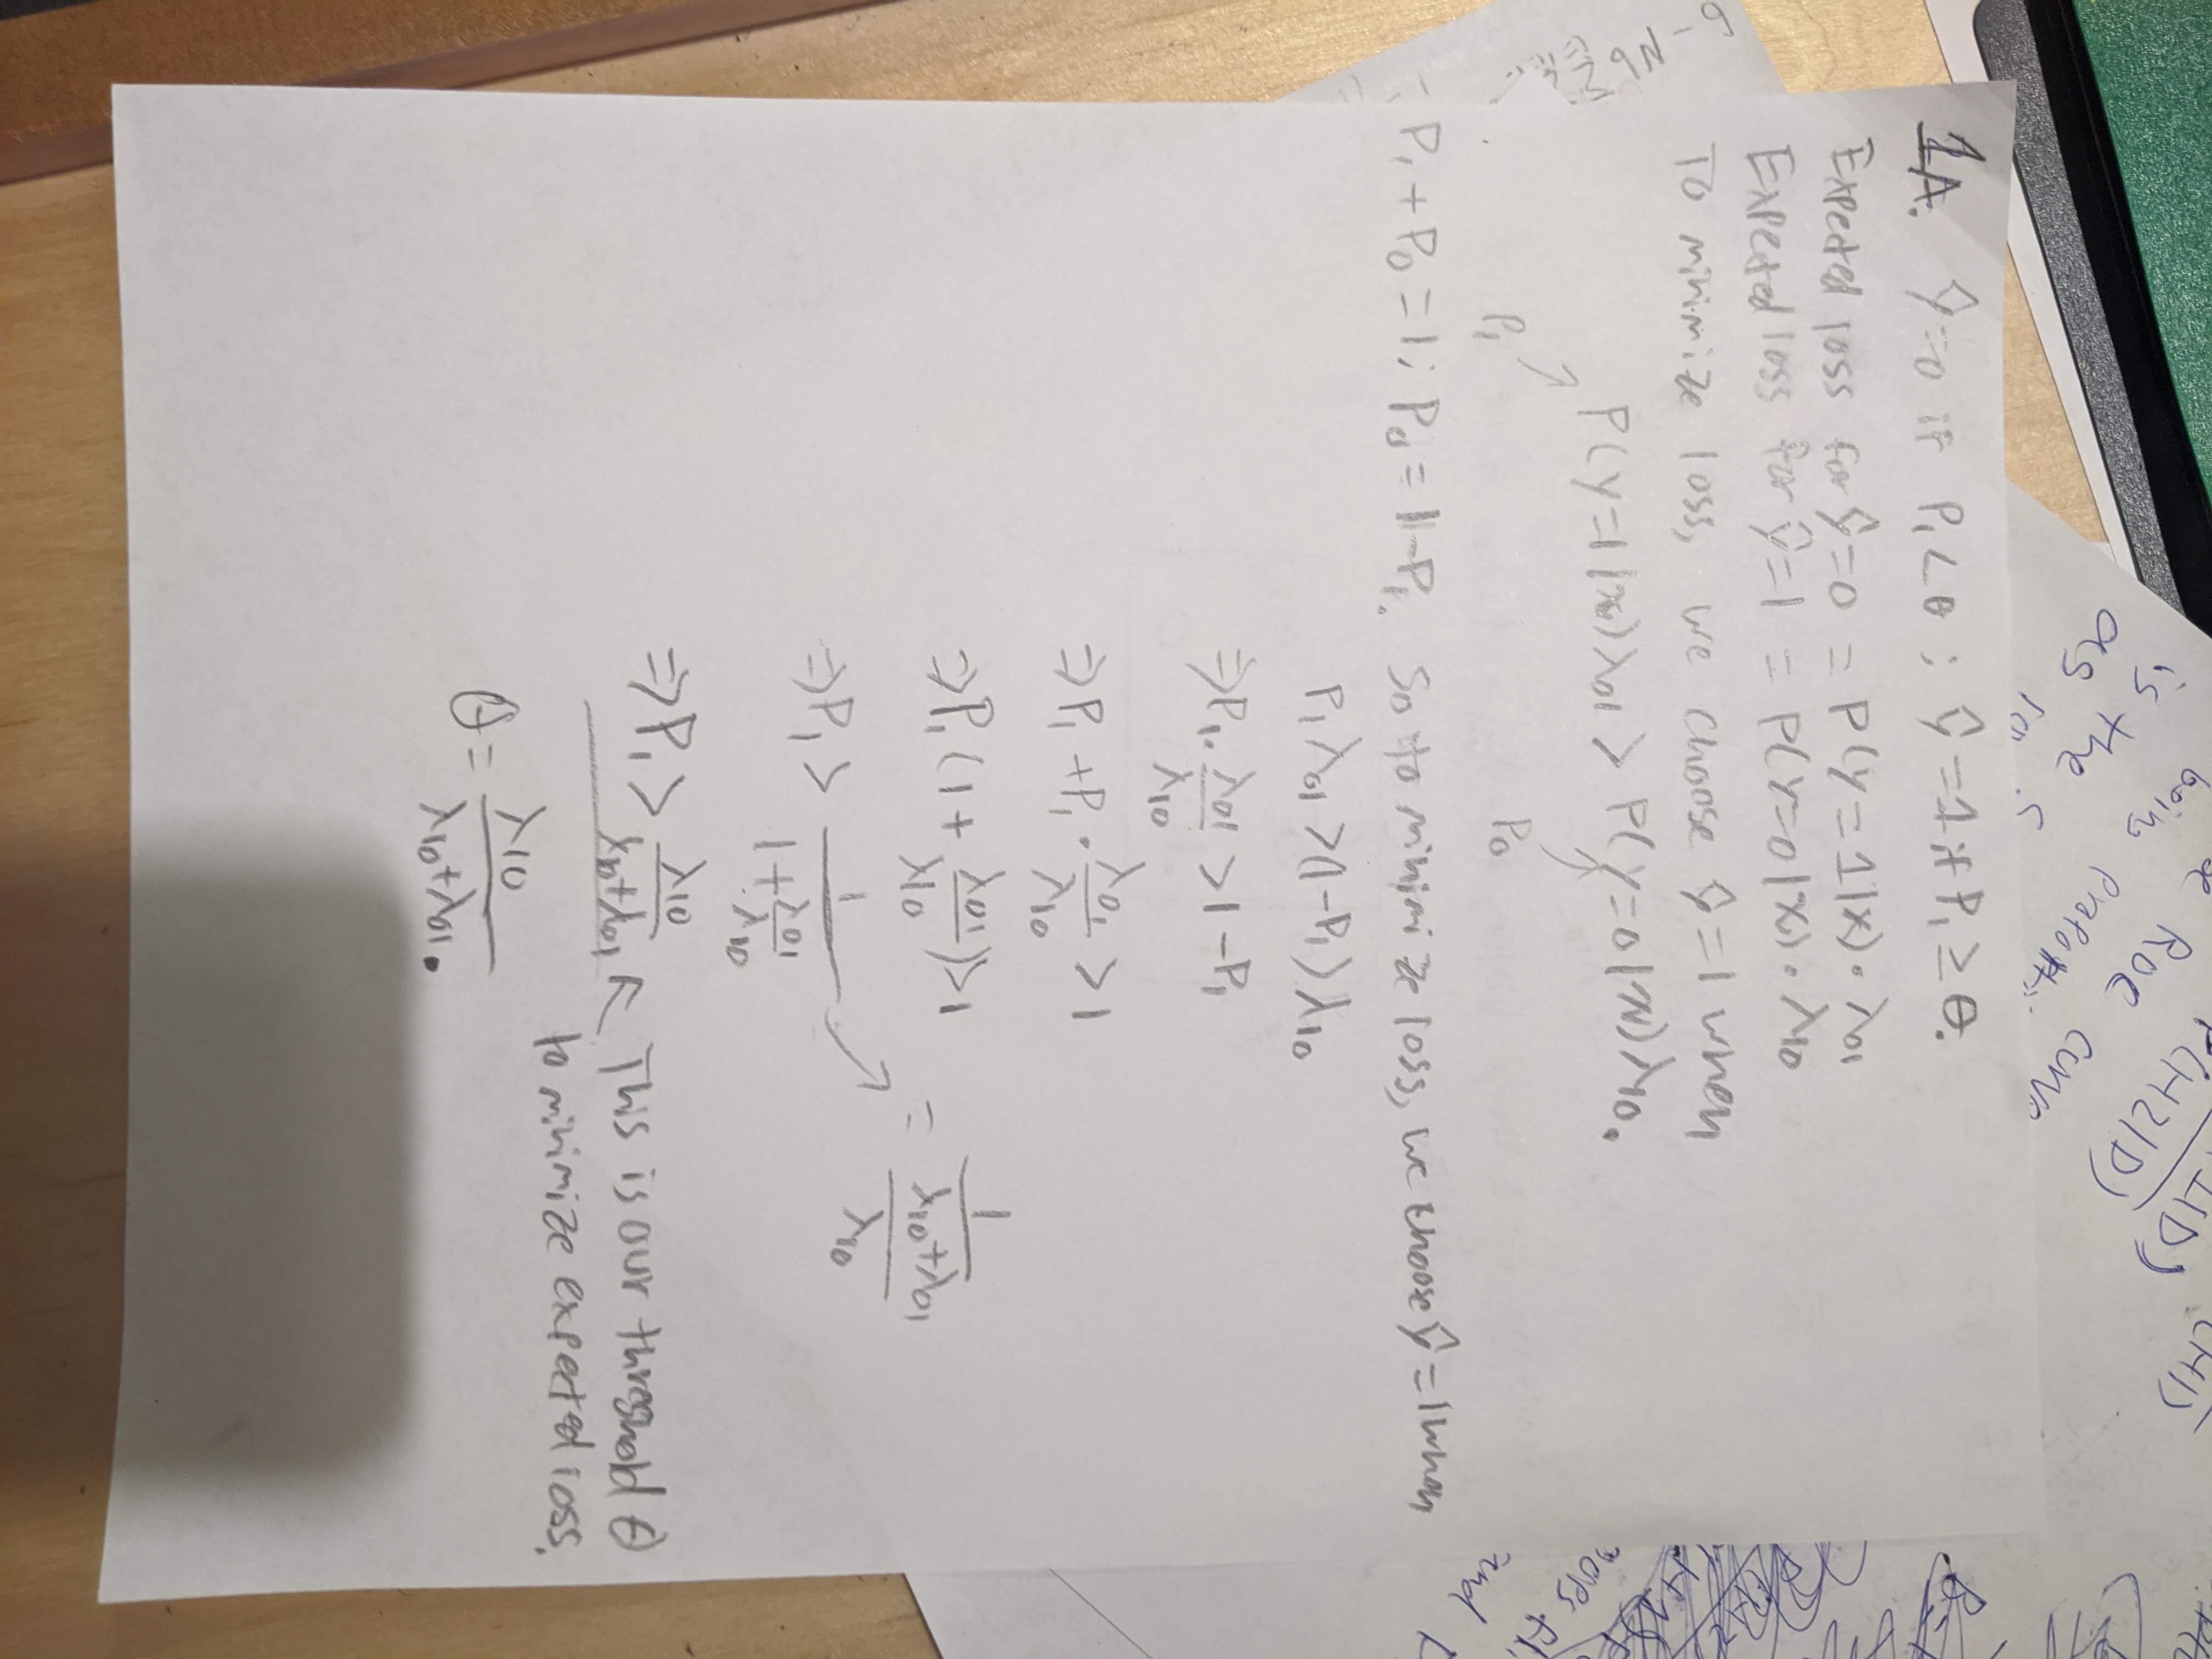 1A. ŷ=0 if P₁<θ; ŷ=1 if P₁≥θ.
Expected loss for ŷ=0 = P(y=1|x)·λ₀₁
Expected loss for ŷ=1 = P(y=0|x)·λ₁₀
To minimize loss, we choose ŷ=1 when
P(y=1|x)λ₀₁ > P(y=0|x)λ₁₀.
P₁ P₀
P₁+P₀=1; P₀=1-P₁. So to minimize loss, we choose ŷ=1 when
P₁λ₀₁>(1-P₁)λ₁₀
=>P₁·λ₀₁/λ₁₀ >1-P₁
=>P₁+P₁·λ₀₁/λ₁₀ >1
=>P₁(1+λ₀₁/λ₁₀)>1
=>P₁> 1/(1+λ₀₁/λ₁₀) → = 1/((λ₁₀+λ₀₁)/λ₁₀)
=>P₁> λ₁₀/(λ₁₀+λ₀₁) ← This is our threshold θ
to minimize expected loss.
θ=λ₁₀/(λ₁₀+λ₀₁).
is the
as
ROC
H2|D)
and